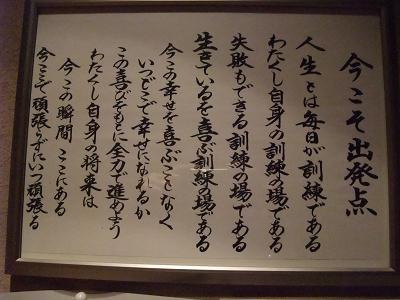 今こそ出発点
人生とは毎日が訓練である
わたくし自身の訓練の場である
失敗もできる訓練の場である
生きているを喜ぶ訓練の場である
今この幸せを喜ぶこともなく
いつどこで幸せになれるか
この喜びをもとに全力で進めよう
わたくし自身の将来は
今この瞬間ここにある
今ここで頑張らずにいつ頑張る